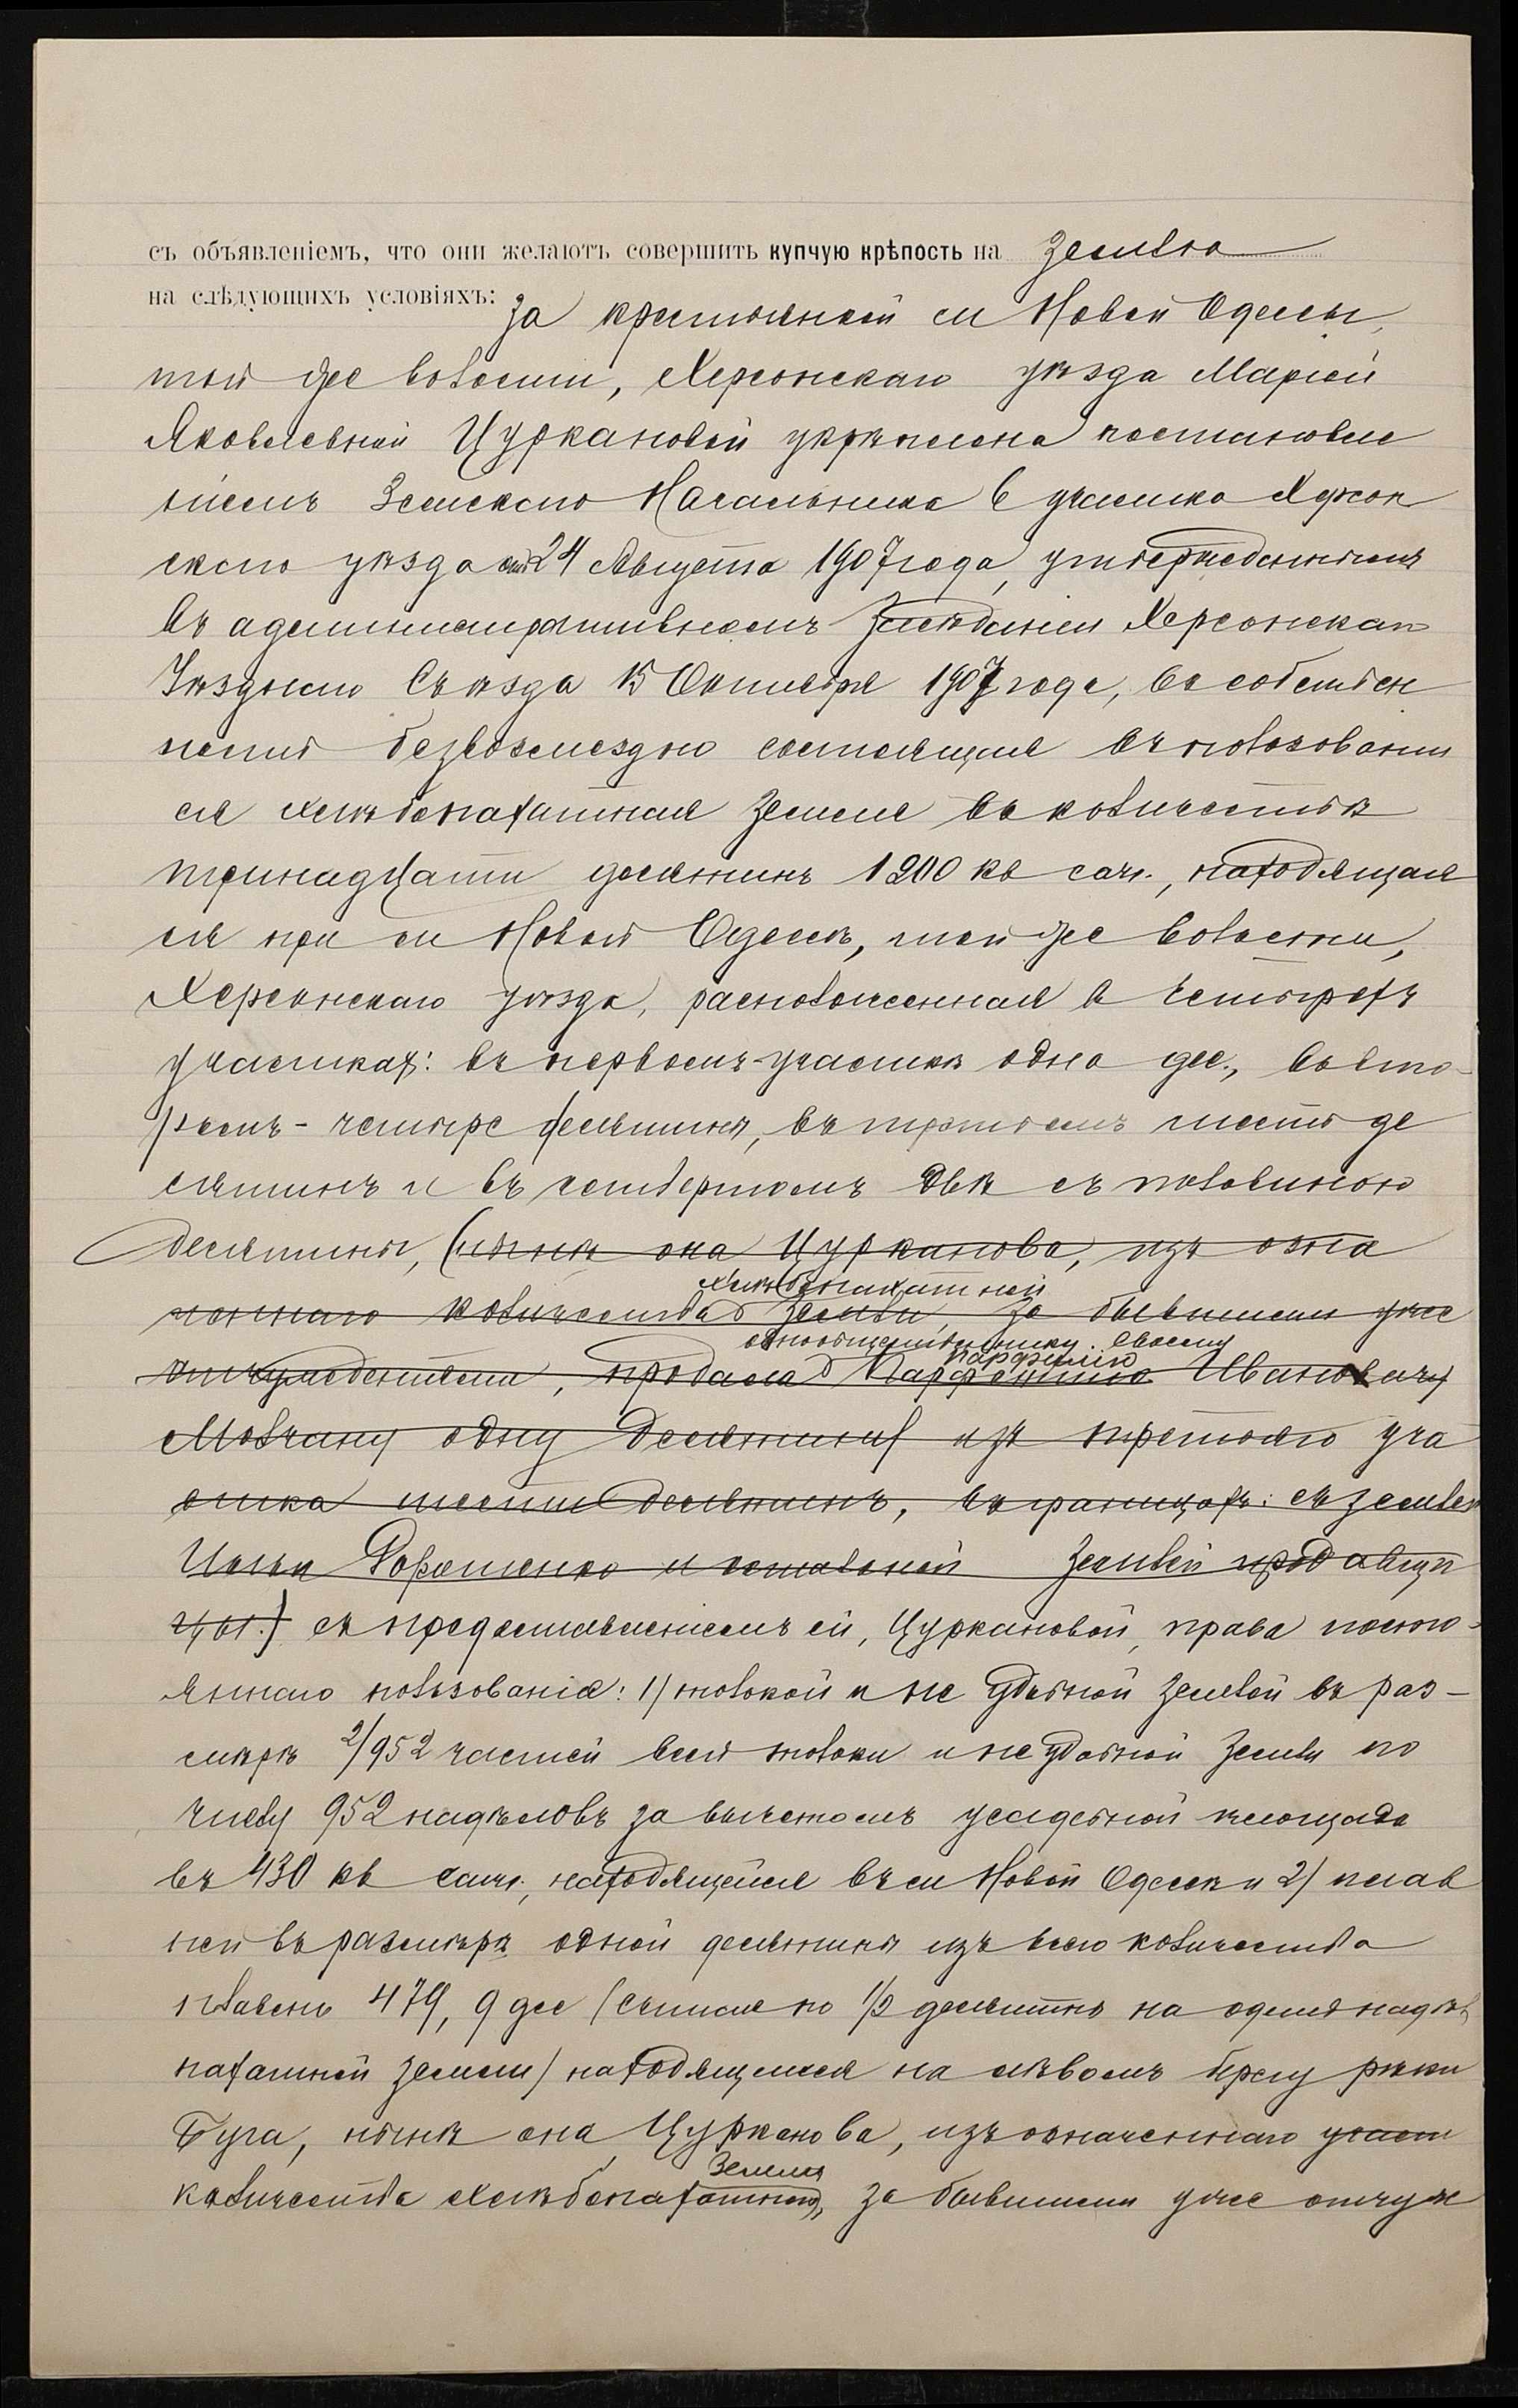 съ объявленіемъ, что они желаютъ совершить купчую крѣпость на землю
на слѣдующихъ условіяхъ: За крестьянкой си Новой Одессы,
той же волости, Херсонскаго уѣзда Маріей
Яковлевной Цуркановой укрѣплена постановле
ніемъ Земскаго Начальника 6 участка Херсон
скаго уѣзда отъ 24 Августа 1907 года, утвержденнымъ
въ административномъ засѣданіи Херсонскаго
Уѣзднаго Съѣзда 15 Октября 1907 года, въ собствен
ность безвозмездно состоящая въ пользованіи
ея хлѣбопахатная земля въ количествѣ
тринадцати десятинъ 1200 кв саж., находящая
ся при си Новой Одессѣ, той же волости,
Херсонскаго уѣзда, расположенная въ четырехъ
участкахъ: въ первомъ-участкѣ одна дес., во вто-
ромъ - четыре десятины, въ третьемъ шесть де
сятинъ и въ четвертомъ двѣ съ половиною
десятины, (нынѣ она Цурканова, изъ озна
хлѣбопахатной
ченнаго количества земли, за бывшими уже
однообщественнику своему
Парфенію
отчужденіями, продала Иванович
Молчану одну десятину изъ третьяго уча
стка шести десятинъ, въ границахъ: съ землей
Ильи Дорошенко и остальной землей продавщи
цы.) съ предоставленіемъ ей, Цуркановой, права посто-
яннаго пользованія: 1) толокой и не удобной землей въ раз-
мѣрѣ 2/952 частей всей толоки и неудобной земли по
числу 952 надѣловъ за вычетомъ усадебной площади
въ 430 кв саж., находящейся въ си Новой Одессѣ и 2) плав
ней въ размѣрѣ одной десятины изъ всего количества
плавень 479,9 дес (считая по 1/2 десятины на одинъ надѣлъ
пахатной земли) находящимися на лѣвомъ брегу рѣки
Буга, нынѣ она Цурканова, изъ означеннаго участ
земли
количества хлѣбопахатной, за бывшими уже отчуж